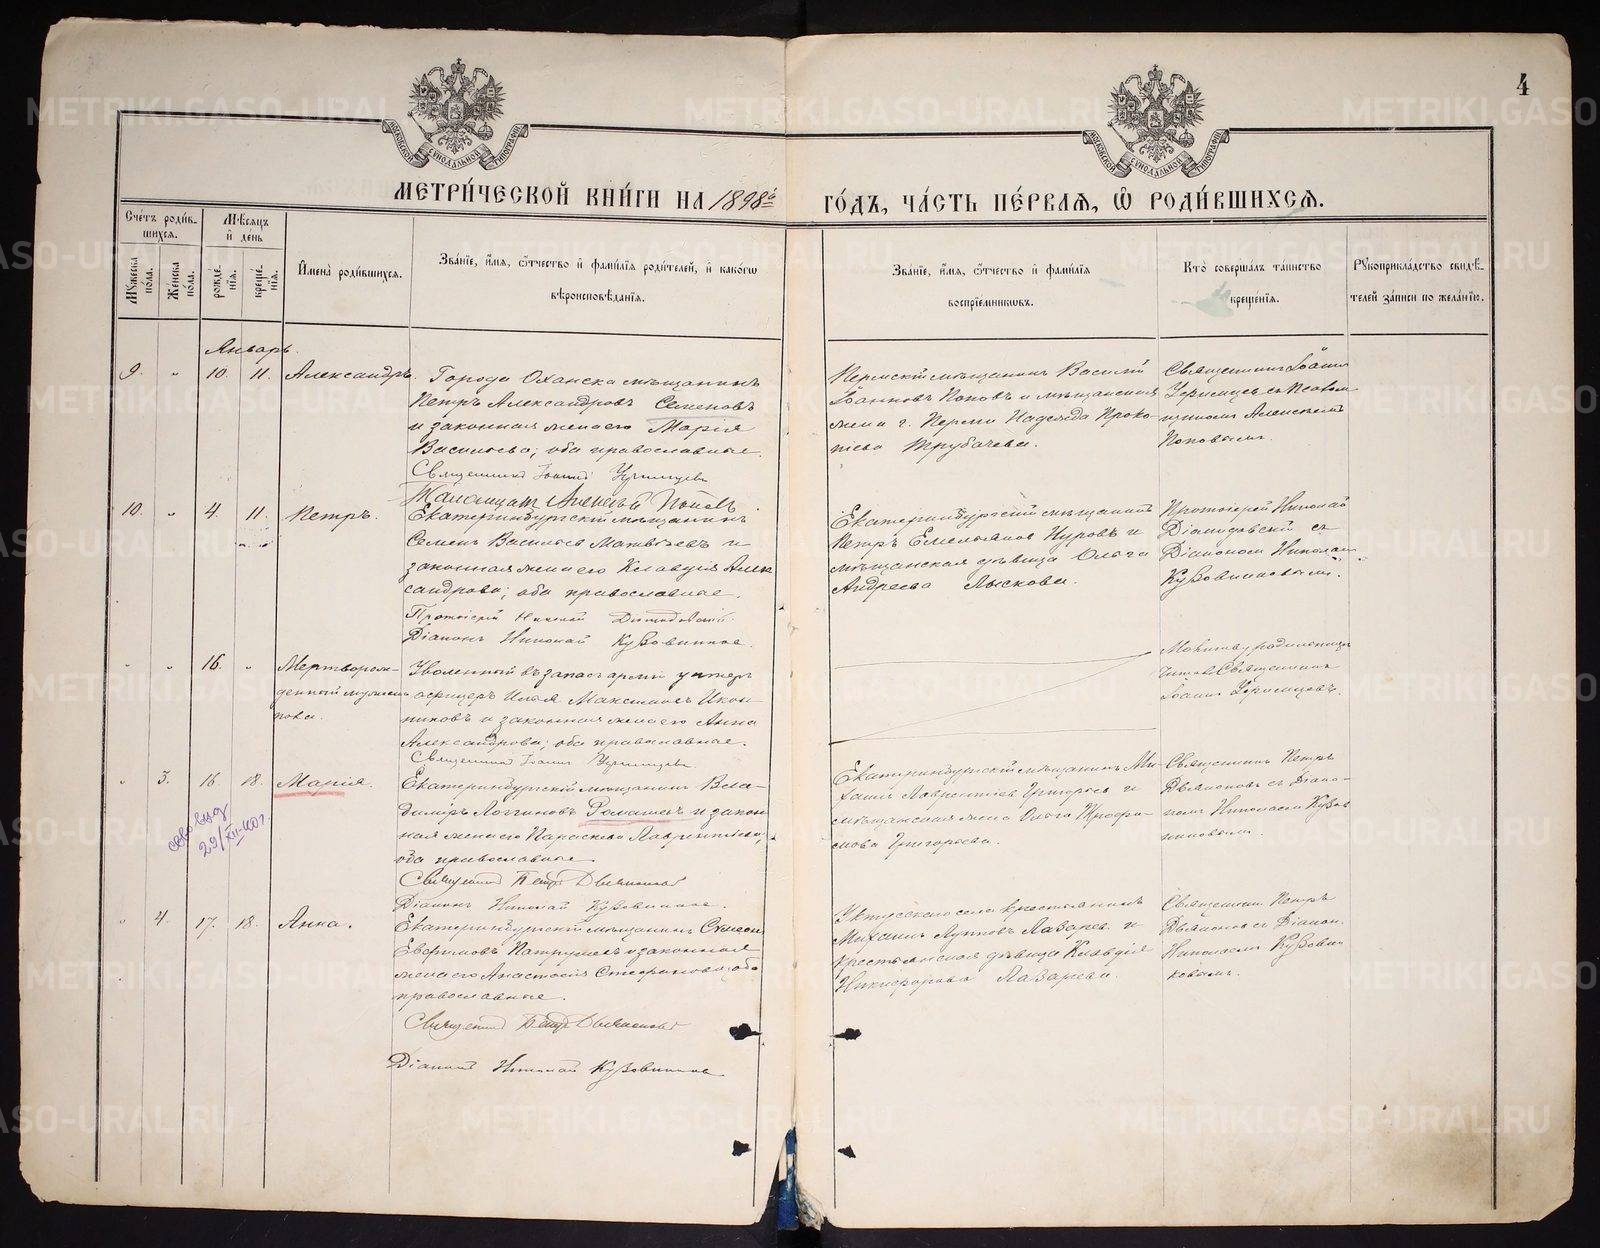 4
МОСКОВСКОЙ СѴНОДАЛЬНОЙ ТИПОГРАФІИ
МОСКОВСКОЙ СѴНОДАЛЬНОЙ ТИПОГРАФІИ
МЕТРИ́ЧЕСКОЙ КНИ́ГИ НА 1898й ГО́ДЪ, ЧА́СТЬ ПЕ́РВАЯ, Ѡ РОДИ́ВШИХСЯ.
Сче́тъ роди́вшихся.
Мѣ́сяцъ и день
Му́жеска по́ла.
Же́нска по́ла.
рожде́нія.
креще́нія.
Имена̀ роди́вшихся.
Зва́ніе, и́мя, ѻ́тчество и фами́лія роди́телей, и како́гѡ
вѣроисповѣ́данія.
Зва́ніе, и́мя, ѻ́тчество и фами́лія
воспріе́мникѡвъ.
Кто̀ соверша́лъ та́инство
креще́нія.
Рꙋкоприкла́дство свидѣ́телей за́писи по жела́нію.
Январь.
9. " 10. 11. Александръ.
Города Оханска мѣщанинъ
Петръ Александровъ Семеновъ
и законная жена его Марія
Васильева; оба православные.
Священникъ Іоаннъ
Алексѣй Поповъ
Пермскій мѣщанинъ Василій
Іоанновъ Поповъ и мѣщанская
жена г. Перми Надежда Проко-
піева Трубачева.
Священникъ Іоаннъ
съ Псалом-
щикомъ Алексѣемъ
Поповымъ.
10. " 4. 11. Петръ.
Екатеринбургскій мѣщанинъ
Семенъ Васильевъ Матвѣевъ и
законная жена его Клавдія Алек-
сандрова; оба православные.
Протоіерей Николай
Діаконъ Николай Кузовниковъ
Екатеринбургскій мѣщанинъ
Петръ Емельяновъ и
мѣщанская дѣвица Ольга
Андреева Лыскова.
Протоіерей Николай
съ
Діакономъ Николаемъ
Кузовниковымъ.
" " 16. " Мертворож-
денный мужеска
пола.
Уволенный въ запасъ арміи унтеръ
офицеръ Илья Максимовъ Икон-
никовъ и законная жена его Анна
Александрова; оба православные.
Священникъ Іоаннъ
Молитву родильницѣ
читалъ Священникъ
Іоаннъ
" 3. 16 18. Марія.
Екатеринбургскій мѣщанинъ Вла-
диміръ Логгиновъ Ромашевъ и закон-
ная жена его Параскева Лаврентіева;
оба православные.
Священникъ Петръ
Діаконъ Николай Кузовниковъ.
29/XII-60 г.
Екатеринбургскій мѣщанинъ Ми-
хаилъ Лаврентіевъ Григорьевъ и
мѣщанская жена Ольга Трофи-
мова Григорьева.
Священникъ Петръ
съ Діако-
номъ Николаемъ Кузов-
никовымъ.
" 4. 17. 18. Анна.
Екатеринбургскій мѣщанинъ
Евфимовъ и законная
жена его Анастасія Стефанова; оба
православные.
Священникъ Петръ
Діаконъ Николай Кузовниковъ
Уктусскаго села крестьянинъ
Михаилъ Лазаревъ и
крестьянская дѣвица Клавдія
Никифорова Лазарева.
Священникъ Петръ
съ Діакон.
Николаемъ Кузовни-
ковымъ.
METRIKI.GASO-URAL.RU